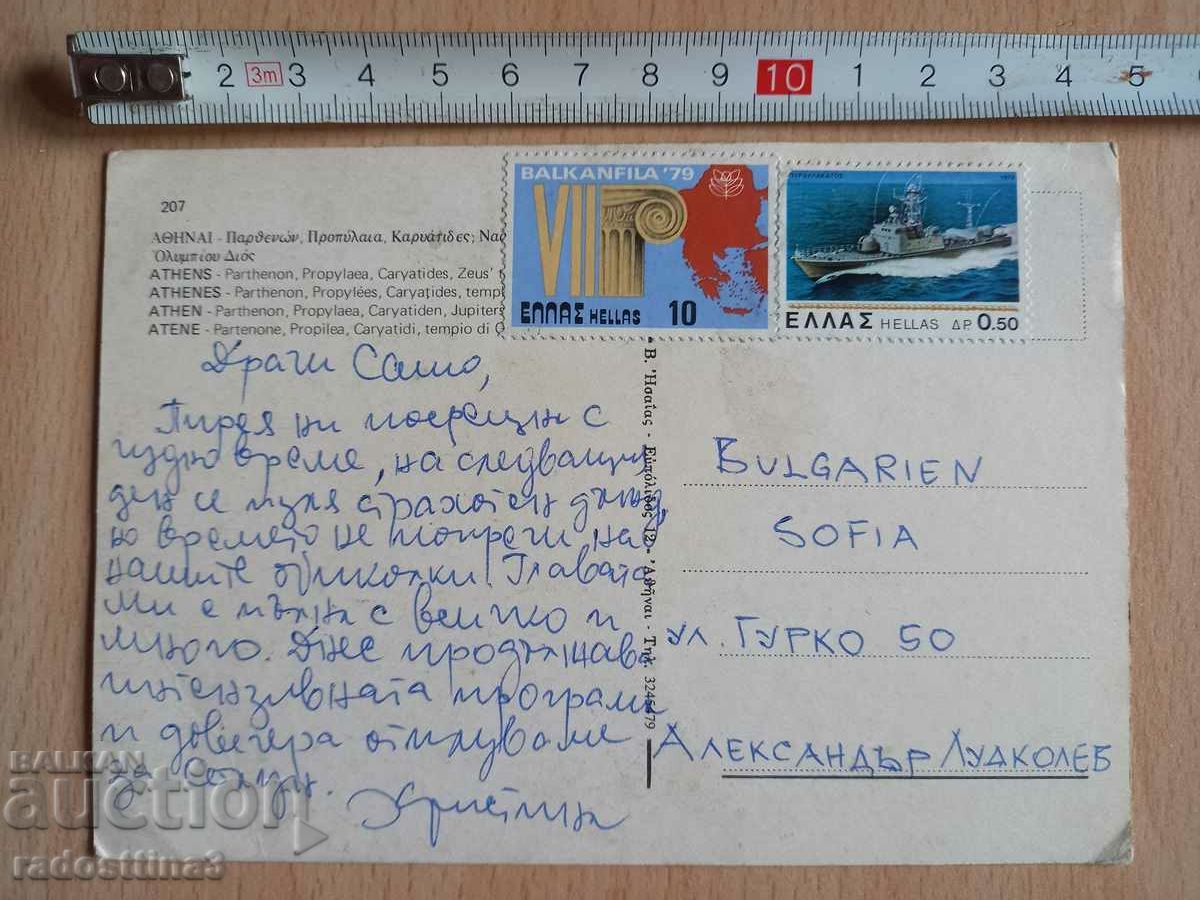 2 3m 3 4 5 6 7 8 9 10 1 2 3 4 5
207
ΑΘΗΝΑΙ - Παρθενών, Προπύλαια, Καρυάτιδες; Ναό
Ὀλυμπίου Διός
ATHENS - Parthenon, Propylaea, Caryatides, Zeus' t
ATHENES - Parthenon, Propylées, Caryatides, templ
ATHEN - Parthenon, Propylaea, Caryatiden, Jupiters
ATENE - Partenone, Propilea, Caryatidi, tempio di
BALKANFILA '79
VIII
ΕΛΛΑΣ HELLAS 10
ΠΥΡΑΥΛΑΚΑΤΟΣ
ΕΛΛΑΣ HELLAS ΔΡ. 0.50
Β. Ἠσαΐας - Εὐπόλιδος 12 - Ἀθῆναι - Τηλ.
Драги Сашо,
Пирея ни посрещна с
чудно време, на следващия
ден се изля страхотен дъжд,
но времето не попречи на
нашите обиколки. Главата
ми е пълна с всичко и
много. Днес продължава
интензивната програма
и довечера отплуваме
за Солун.
BULGARIEN
SOFIA
УЛ. ГУРКО 50
АЛЕКСАНДЪР ЛУДКОЛЕВ
BALKAN
auction
radosttina3